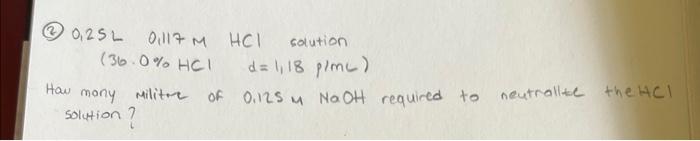 ② 0,25 L 0,117 M HCl solution
(36.0% HCl d = 1,18 p/mL)
How many Militre of 0.125 M NaOH required to neutralize the HCl
solution?